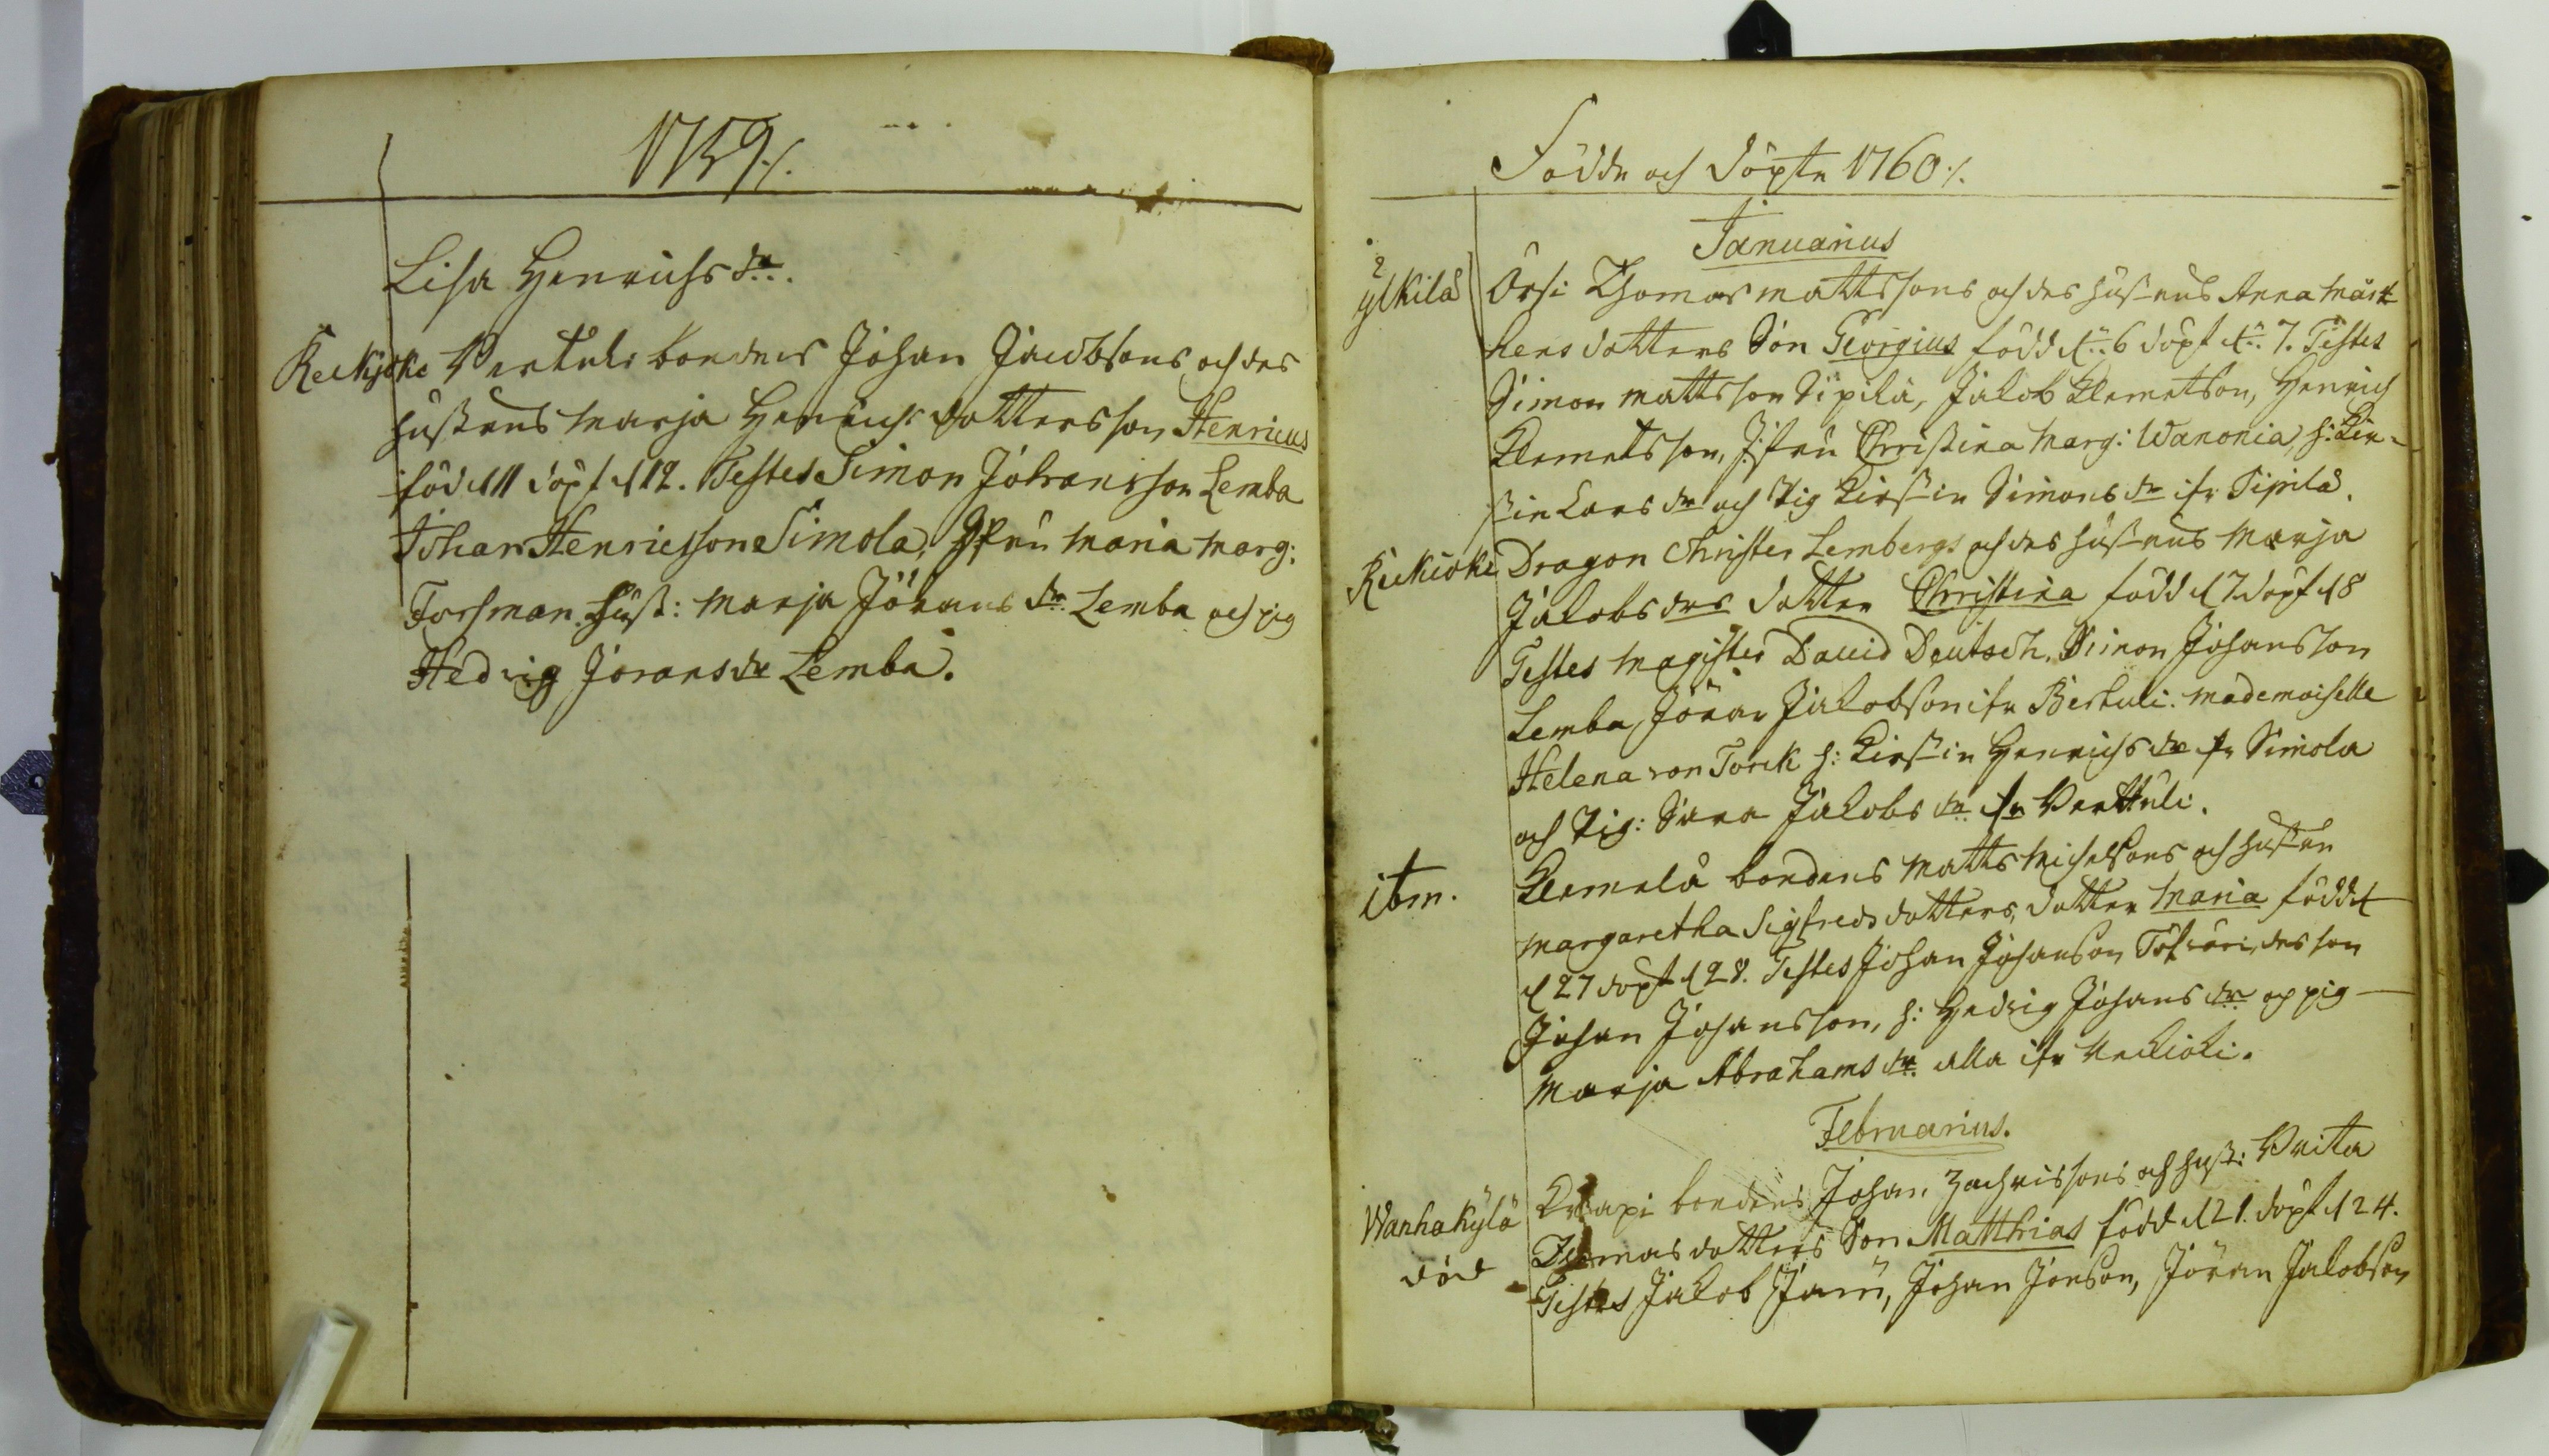 1759 ./.
Lisa Henrichs dr.
Keckjoke Pertuli bondens Johan Jacobsons och des
hustrus Marja Henrichs dotters son Henricus
född d 11 döpt d 12. Testes Simon Johansson Lemba
Johan Henricsson Simola, Jfru Maria Marg:
Forsman. Hust: Marja Jörans dr. Lemba och pig
Hedvig Jörans dr Lemba.
Födde och döpte 1760 ./.
Januarius
Ylkilä Orsi Thomas Mattssons och des hustrus Anna Mårt
hens dotters Son Georgius född d: 6 döpt d: 7. Testes
Simon Mattsson Sipilä, Jakob Klemetson, Henrich
Klemetsson, Jfru Christina Marg: Wanonia, h: Kir-
stin Lars dr och Pig Kirstin Simons dr ifr Sipilä.
Keckioke Dragon Christer Lembergs och des hustrus Marja
Jakobs drs dotter Christina född d 7 döpt d 8
Testes Magister David Deutsch, Simon Johansson
Lemba, Jöran Jakobson ifr Bertuli. Mademoiselle
Helena von Torck h: Kirstin Henrichs dr fr Simola
och Pig: Sara Jakobs dr fr Perttuli.
itm. Klemelä bondens Matts Michelsons och hustru
Margaretha Sigfreds dotters, dotter Maria född
d 27 döpt d 28. Testes Johan Johanson des son
Johan Johansson, h: Hedvig Johans dr och pig
Marja Abrahams dr. alla ifr Keckioki.
Februarius.
Wanhakylä Knapi bondens Johan Zachrissons och hust: Brita
död Thomas dotters Son Matthias född d 21. döpt d 24.
Testes Jakob Jami, Johan Jonson, Jöran Jakobson